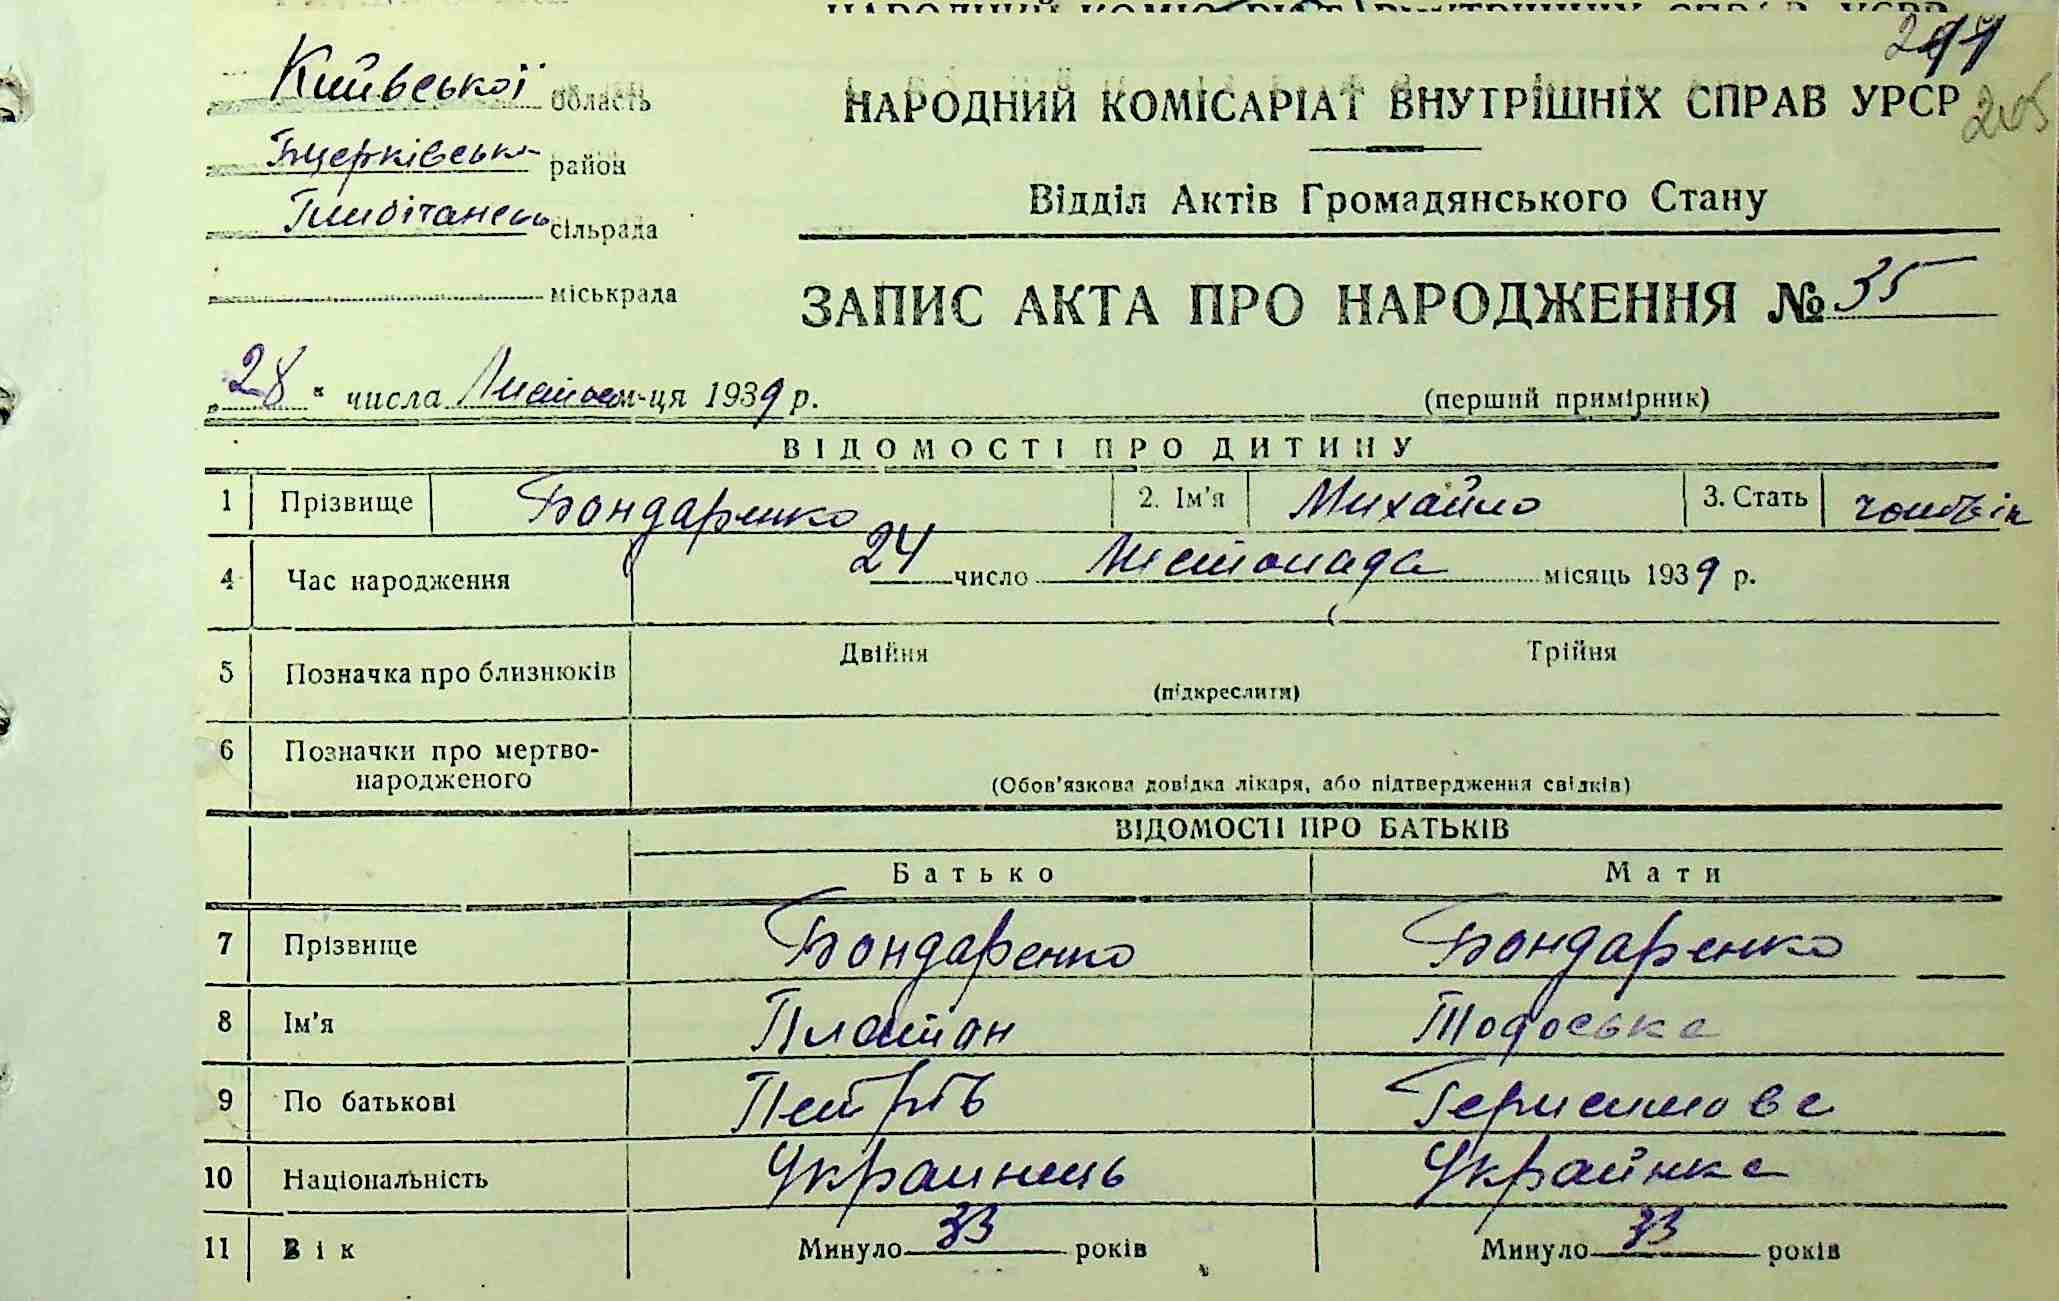 Київської область
НАРОДНИЙ КОМІСАРІАТ ВНУТРІШНІХ СПРАВ УРСР
Б церківськ район
сільрада
Відділ Актів Громадянського Стану
міськрада
ЗАПИС АКТА ПРО НАРОДЖЕННЯ № 35
„28" числа Листопад м-ця 1939 р.
(перший примірник)
ВІДОМОСТІ ПРО ДИТИНУ
1 Прізвище Бондаренко 2. Ім'я Михайло 3. Стать чоловік
4 Час народження 24 число Листопада місяць 1939 р.
5 Позначка про близнюків Двійня Трійня
(підкреслити)
6 Позначки про мертво-
народженого
(Обов'язкова довідка лікаря, або підтвердження свідків)
ВІДОМОСТІ ПРО БАТЬКІВ
Батько Мати
7 Прізвище Бондаренко Бондаренко
8 Ім'я Платон Тодоська
9 По батькові Петрів Герасимова
10 Національність Украинець Украйнка
11 Вік Минуло 33 років Минуло 33 років